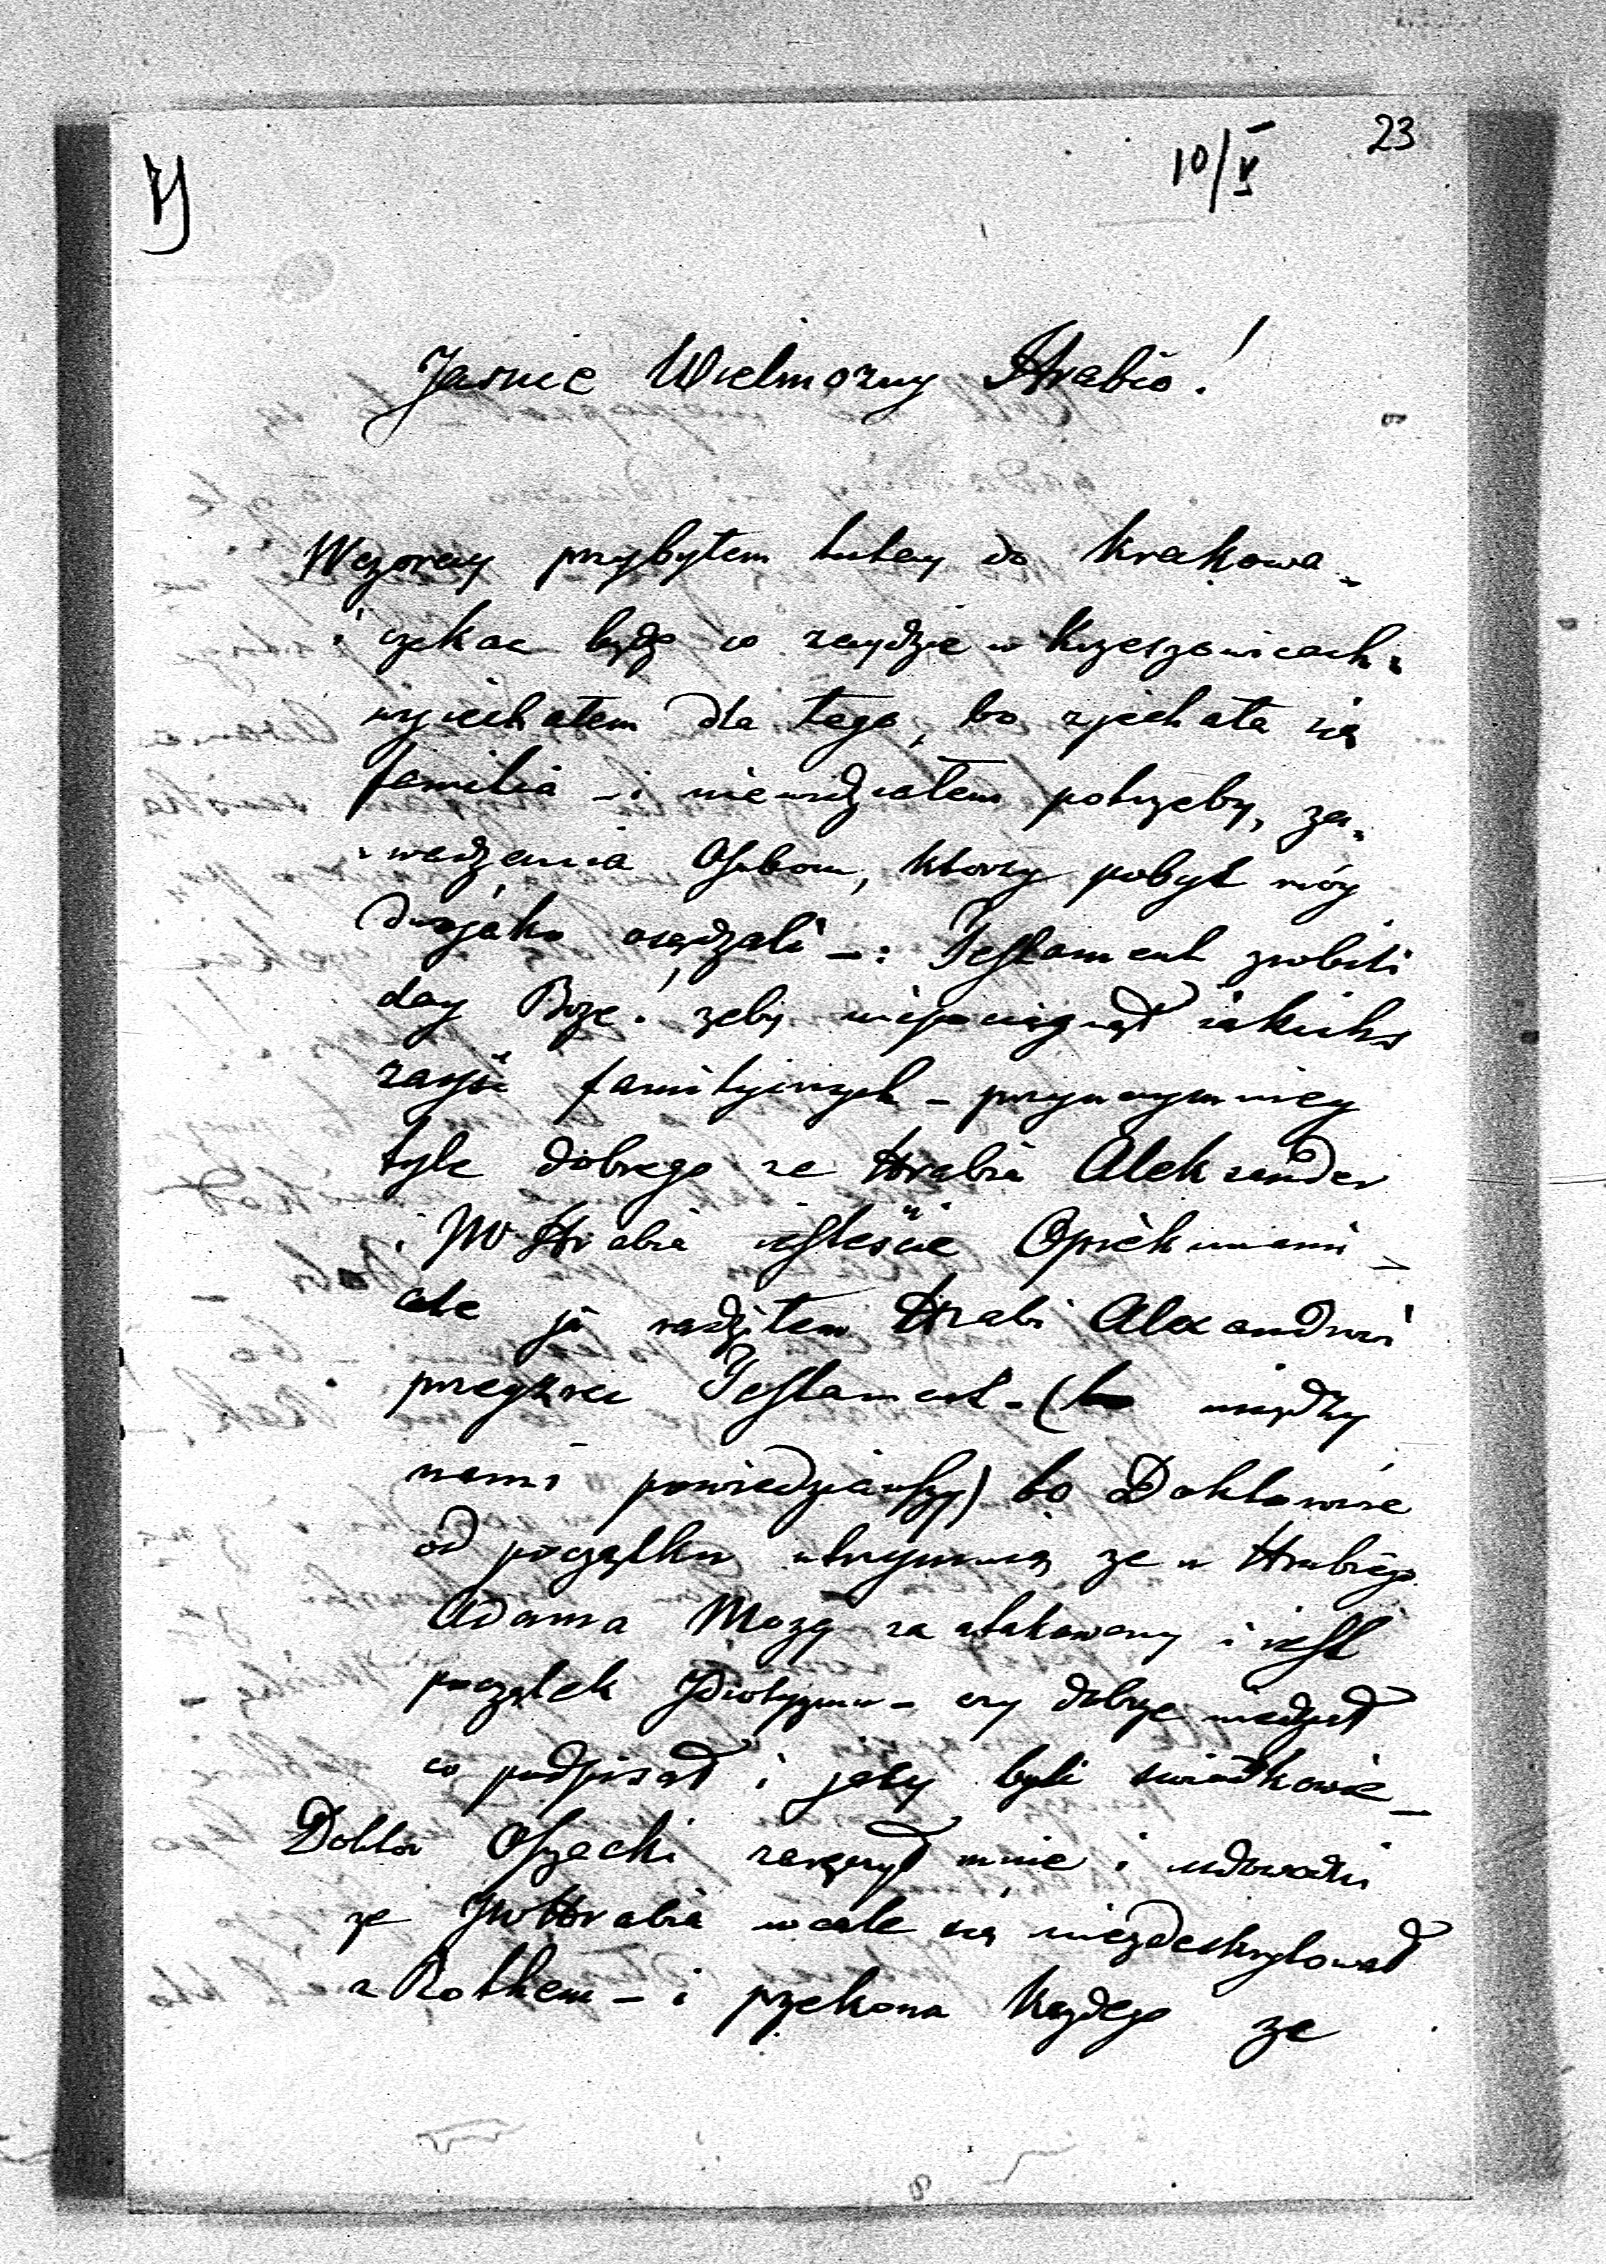 23
10/V
Jasnie Wielmozny Hrabio!
Wczoray przybyłem tutay do Krakowa -
i czekac będę co zaydzie w Krzeszowicach -
wyiechałem dla tego, bo zjechała się
familia - i niewidziałem potrzeby, za-
-wadzania Osobom, ktorzy pobyt móy
dwojako osądzali -: Testament zrobili
day Boze! zeby niepociągnął iakichs
zayść familyinych - przynaymniey
tyle dobrego ze Hrabia Aleksander
i JW Hrabia iesteście Opiekunami -
ale ja radziłem Hrabi Alexandrowi
przeyzrec Testament - (
między
nami powiedziawszy) bo Doktorowie
od początku utrzymuią ze u Hrabiego
Adama Mozg zaatakowany i iest
początek Idiotyzmu - czy dobrze wiedział
co podpisał i jacy byli swiadkowie -
Doktor Oszacki zaręczył mnie i udowodni
ze JW Hrabia wcale się niezdeskrytował
z Rothem - i przekona kazdego ze